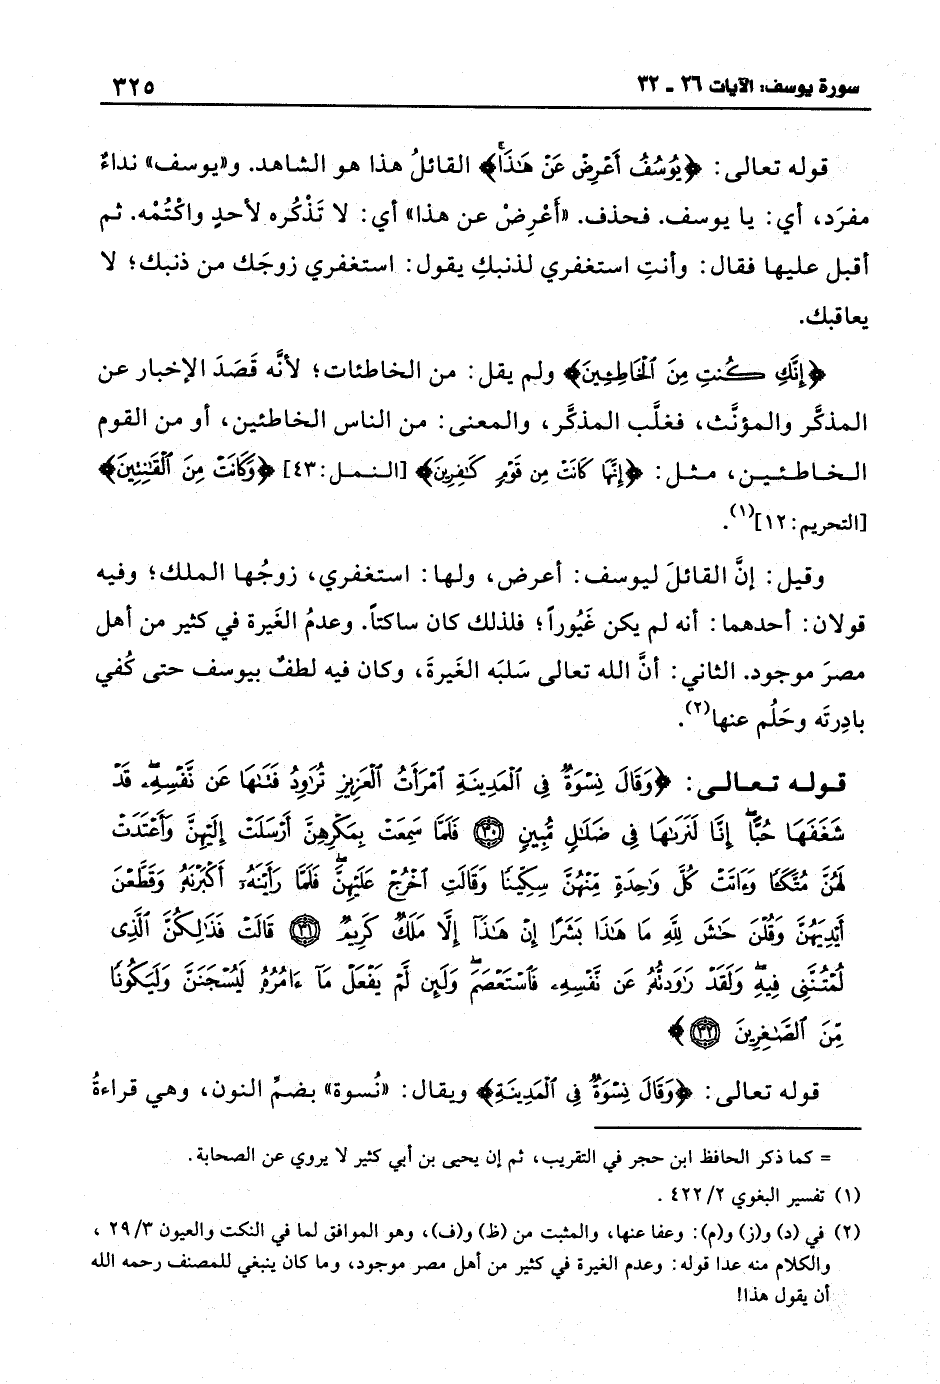 سورة يوسف: الآيات ٢٦ - ٣٢
٣٢٥
قوله تعالى: ﴿يُوسُفُ أَعْرِضْ عَنْ هَٰذَا﴾ القائلُ هذا هو الشاهد. و«يوسف» نداءٌ
مفرَد، أي: يا يوسف. فحذف. «أَعْرِضْ عن هذا» أي: لا تَذْكُره لأحدٍ واكْتُمْه. ثم
أقبل عليها فقال: وأنتِ استغفري لذنبكِ يقول: استغفري زوجَك من ذنبك؛ لا
يعاقبك.
﴿إِنَّكِ كُنتِ مِنَ ٱلْخَاطِـِٔينَ﴾ ولم يقل: من الخاطئات؛ لأنَّه قَصَدَ الإخبار عن
المذكَّر والمؤنَّث، فغلَّب المذكَّر، والمعنى: من الناس الخاطئين، أو من القوم
الخاطئين، مثل: ﴿إِنَّهَا كَانَتْ مِن قَوْمٍ كَٰفِرِينَ﴾ [النمل:٤٣] ﴿وَكَانَتْ مِنَ ٱلْقَٰنِتِينَ﴾
[التحريم:١٢](١).
وقيل: إنَّ القائلَ ليوسف: أعرض، ولها: استغفري، زوجُها الملك؛ وفيه
قولان: أحدهما: أنه لم يكن غَيُوراً؛ فلذلك كان ساكتاً. وعدمُ الغَيرة في كثير من أهل
مصرَ موجود. الثاني: أنَّ الله تعالى سَلبَه الغَيرةَ، وكان فيه لطفٌ بيوسف حتى كُفي
بادِرتَه وحَلُم عنها(٢).
قوله تعالى: ﴿وَقَالَ نِسْوَةٌ فِى ٱلْمَدِينَةِ ٱمْرَأَتُ ٱلْعَزِيزِ تُرَٰوِدُ فَتَىٰهَا عَن نَّفْسِهِۦ قَدْ
شَغَفَهَا حُبًّا إِنَّا لَنَرَىٰهَا فِى ضَلَٰلٍ مُّبِينٍ ٣٠ فَلَمَّا سَمِعَتْ بِمَكْرِهِنَّ أَرْسَلَتْ إِلَيْهِنَّ وَأَعْتَدَتْ
لَهُنَّ مُتَّكَـًٔا وَءَاتَتْ كُلَّ وَٰحِدَةٍ مِّنْهُنَّ سِكِّينًا وَقَالَتِ ٱخْرُجْ عَلَيْهِنَّ فَلَمَّا رَأَيْنَهُۥٓ أَكْبَرْنَهُۥ وَقَطَّعْنَ
أَيْدِيَهُنَّ وَقُلْنَ حَٰشَ لِلَّهِ مَا هَٰذَا بَشَرًا إِنْ هَٰذَآ إِلَّا مَلَكٌ كَرِيمٌ ٣١ قَالَتْ فَذَٰلِكُنَّ ٱلَّذِى
لُمْتُنَّنِى فِيهِ وَلَقَدْ رَٰوَدتُّهُۥ عَن نَّفْسِهِۦ فَٱسْتَعْصَمَ وَلَئِن لَّمْ يَفْعَلْ مَآ ءَامُرُهُۥ لَيُسْجَنَنَّ وَلَيَكُونًا
مِّنَ ٱلصَّٰغِرِينَ ٣٢﴾
قوله تعالى: ﴿وَقَالَ نِسْوَةٌ فِى ٱلْمَدِينَةِ﴾ ويقال: «نُسوة» بضمِّ النون، وهي قراءةُ
= كما ذكر الحافظ ابن حجر في التقريب، ثم إن يحيى بن أبي كثير لا يروي عن الصحابة.
(١) تفسير البغوي ٤٢٢/٢ .
(٢) في (د) و(ز) و(م): وعفا عنها، والمثبت من (ظ) و(ف)، وهو الموافق لما في النكت والعيون ٢٩/٣ ،
والكلام منه عدا قوله: وعدم الغيرة في كثير من أهل مصر موجود، وما كان ينبغي للمصنف رحمه الله
أن يقول هذا!